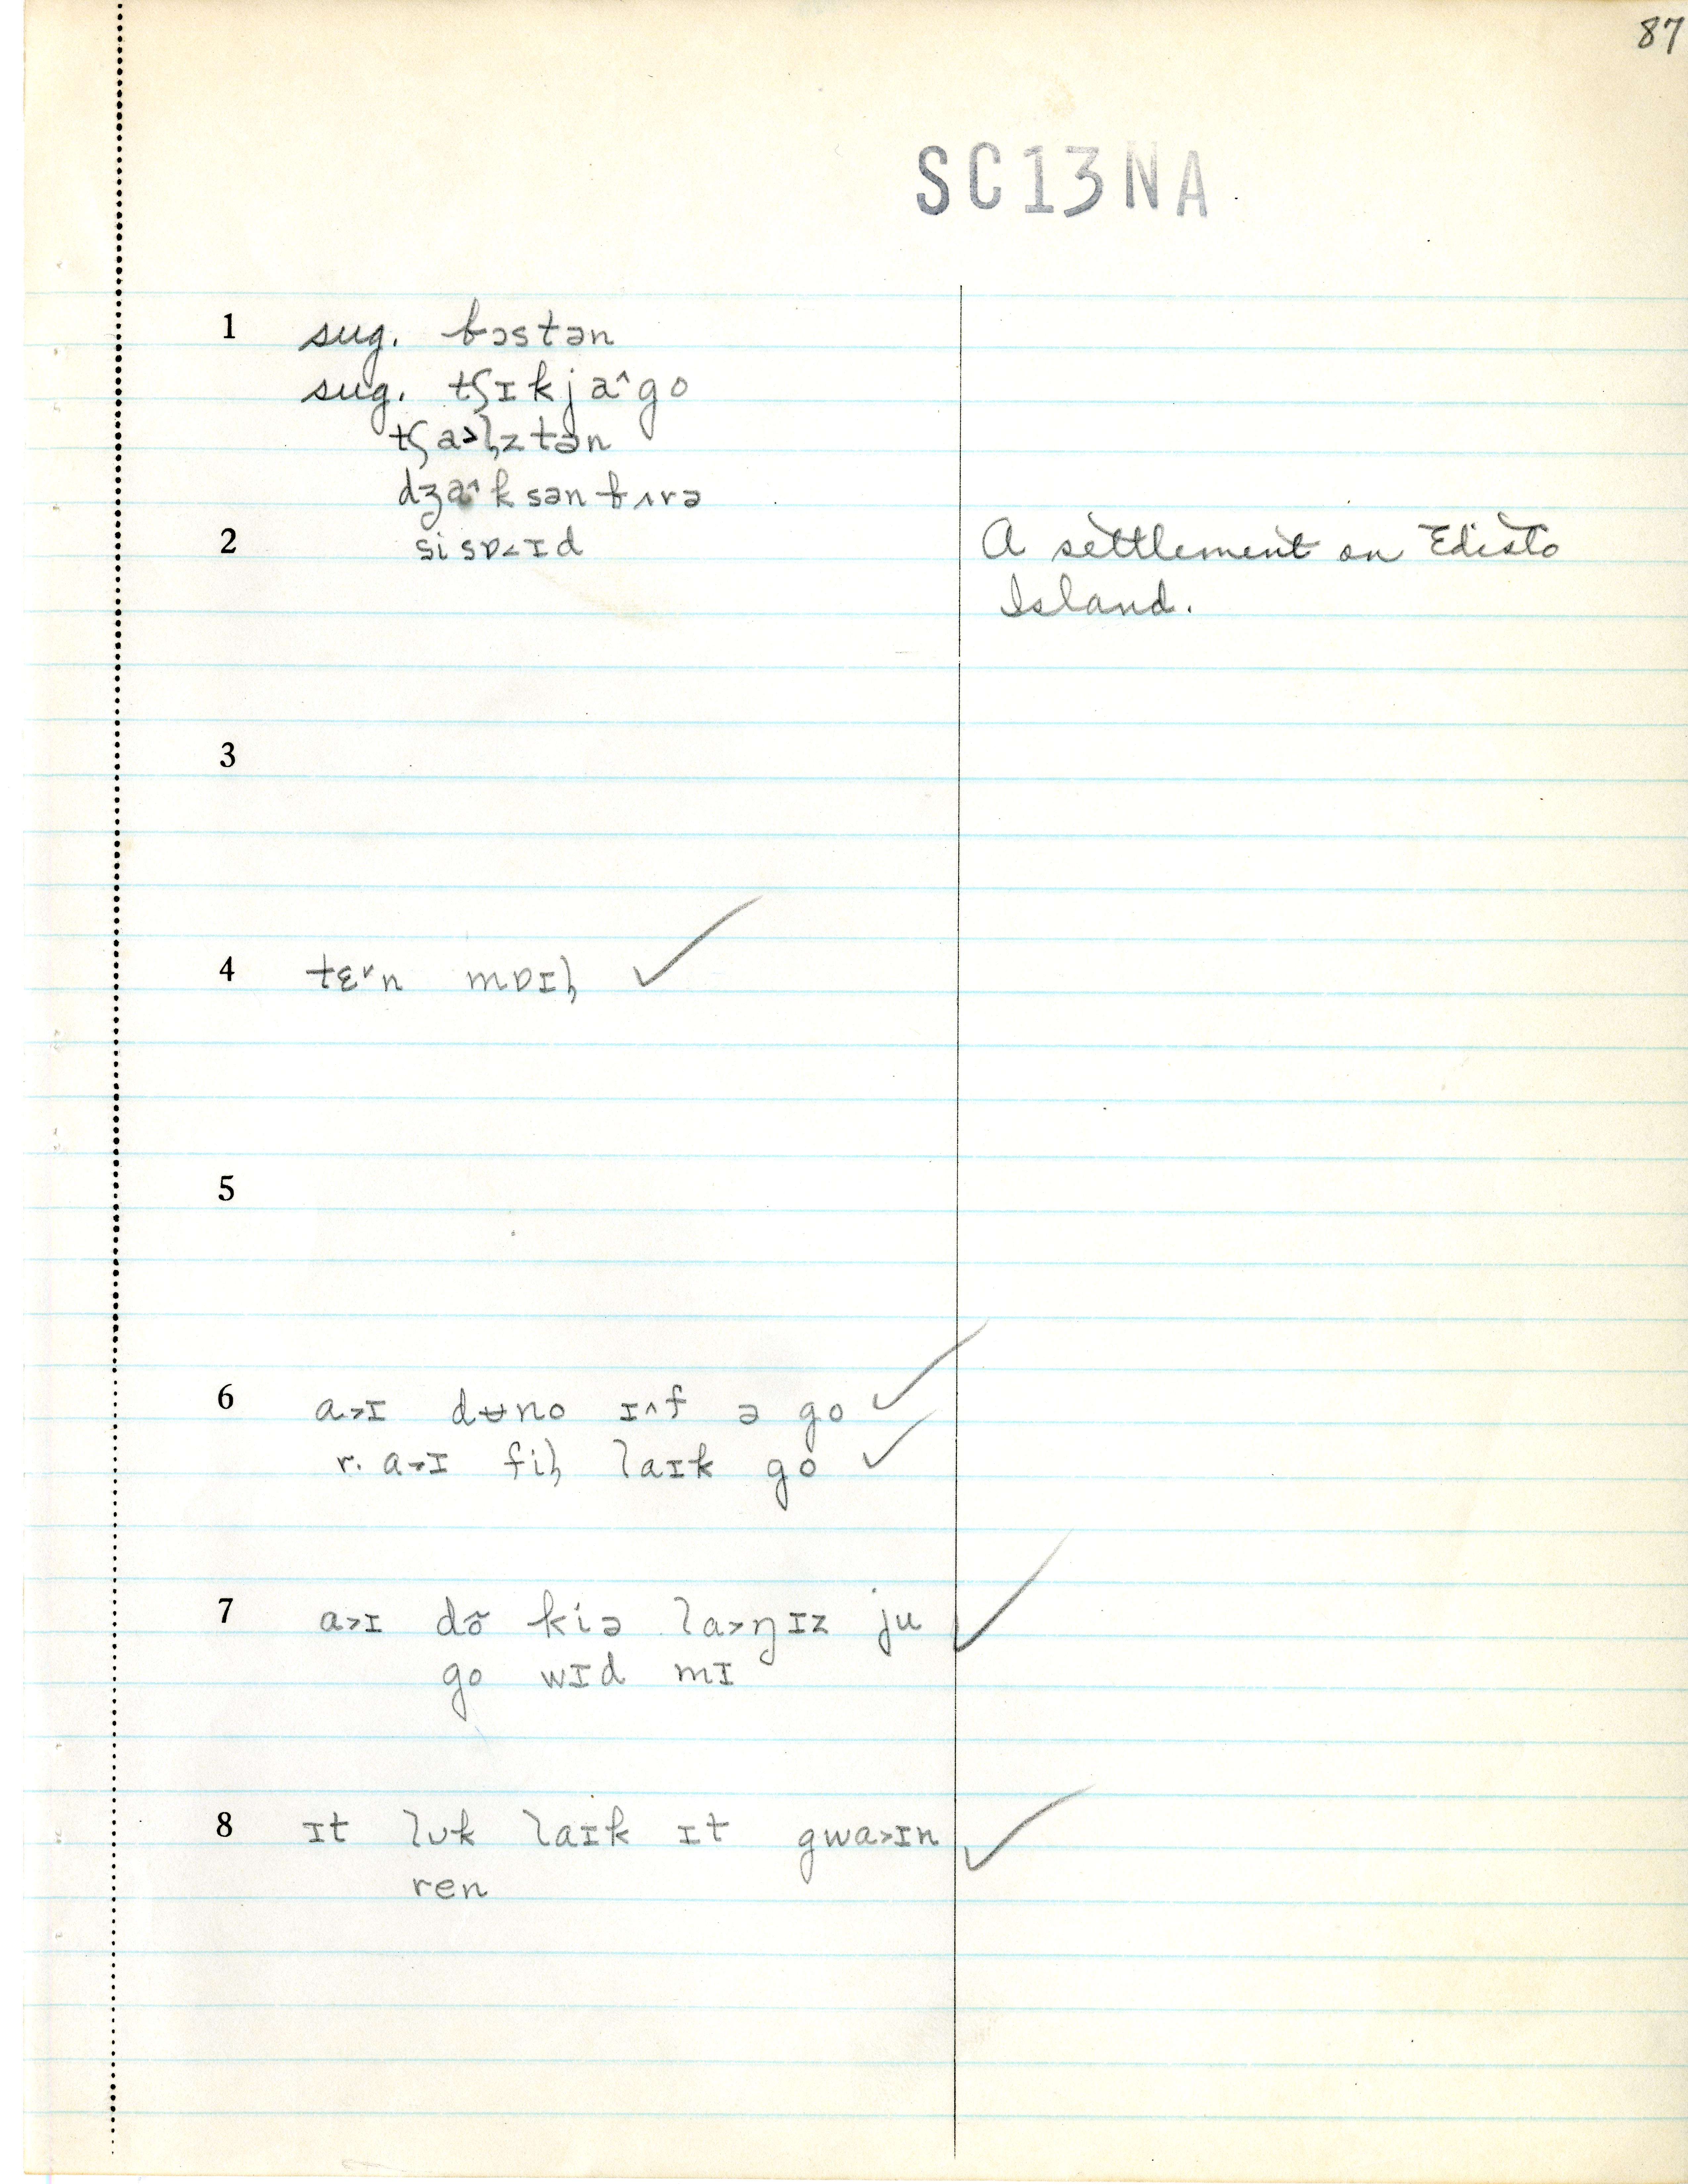 87
SC13NA
1 sug. bɔstən
sug. tʃɪkja^go
tʃa>lztən
dʒa^ksənbʌrə
2 sisɒ<ɪd A settlement on Edisto
Island.
3
4 tɛ˅n mɒɪl ✓
5
6 a>ɪ dʉno ɪ^f ə go ✓
r. a>ɪ fil laɪk go ✓
7 a>ɪ dõ kiə la>ŋɪz ju ✓
go wɪd mɪ
8 ɪt lʊk laɪk ɪt gwa>ɪn ✓
ren